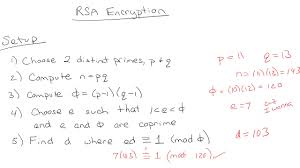 RSA Encryption
Setup
1) Choose 2 distinct primes, p ≠ q
2) Compute n = pq
3) Compute ϕ = (p-1)(q-1)
4) Choose e such that 1<e<ϕ
and e and ϕ are coprime
5) Find d where ed ≡ 1 (mod ϕ)
7(103) ≡ 1 (mod 120) ✓
p = 11 q = 13
n = (11)(13) = 143
ϕ = (10)(12) = 120
e = 7
d = 103